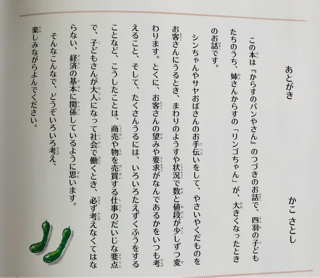 あとがき
かこ さとし
この本は『からすのパンやさん』のつづきのお話で、四羽の子ども
たちのうち、姉さんからすの「リンゴちゃん」が、大きくなったとき
のお話です。
シンちゃんやサヤおばさんのお手伝いをして、やさいやくだものを
お客さんにうるとき、まわりのようすや状況で数と値段が少しずつ変
わります。とくに、お客さんの望みや要求がなんであるかをいつも考
えること、そして、たくさんうるには、いろいろたえずくふうをする
ことなど、こうしたことは、商売や物を売買する仕事のだいじな要点
で、子どもさんが大人になって社会で働くとき、必ず考えなくてはな
らない、経済の基本に関係しているように思います。
そんなこんなで、どうぞいろいろ考え、
楽しみながらよんでください。